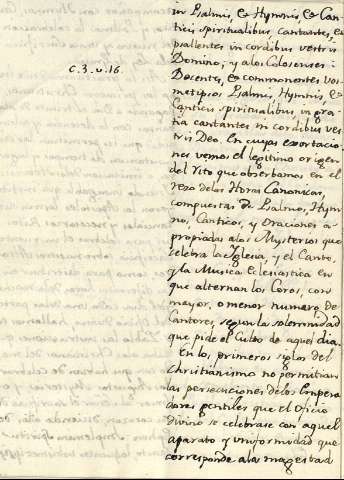 in Psalmis, & Hymnis, & Can-
ticis spiritualibus, cantantes, &
psallentes in cordibus vestris
Domino; y a los Colosenses:
C. 3. v. 16.
Docentes, & commonentes vos-
metipsos Psalmis, Hymnis, &
Canticis spiritualibus, in gra-
tia cantantes in cordibus ves-
tris Deo. En cuyas exortacio-
nes vemos el legitimo origen
del rito que observamos en el
rezo de las Horas Canonicas,
compuestas de Psalmos, Hym-
nos, Canticos, y oraciones a-
propiadas a los Mysterios que
celebra la Iglesia, y el Canto,
y la Musica Eclesiastica en
que alternan los Coros, con
mayor, o menor numero de
Cantores, segun la solemnidad
que pide el Culto de aquel dia.
En los primeros siglos del
Christianismo no permitian
las persecuciones de los Empera-
dores gentiles que el Oficio
divino se celebrase con aquel
aparato y uniformidad que
corresponde a la magestad